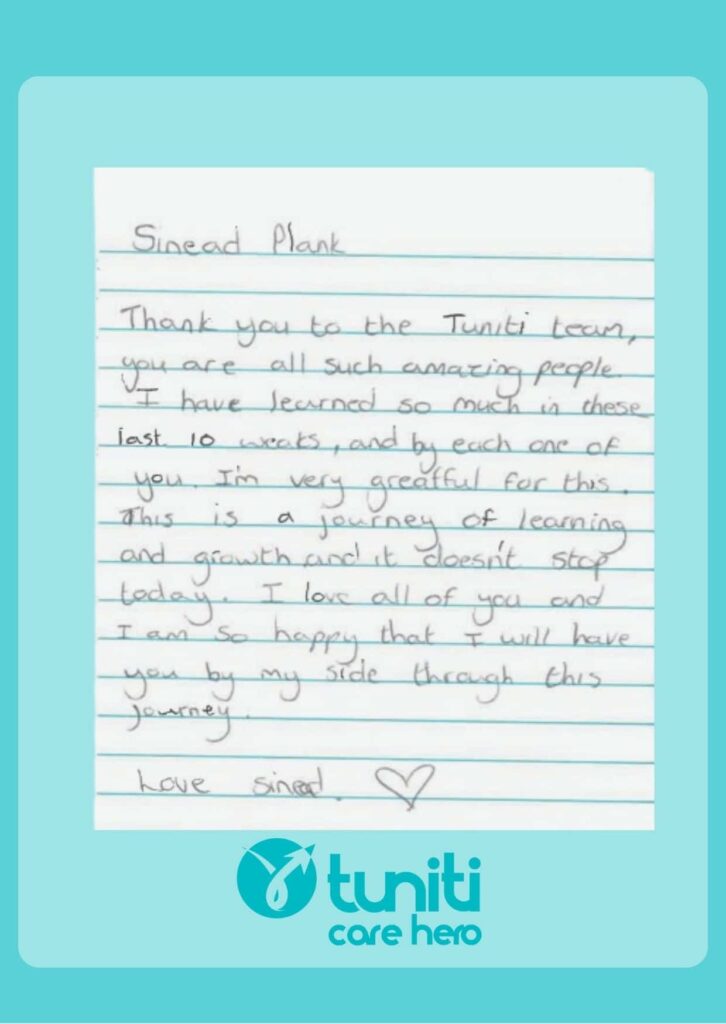 Sinead Plank
Thank you to the Tuniti team,
you are all such amazing people.
I have learned so much in these
last 10 weaks, and by each one of
you. I'm very greatful for this.
This is a journey of learning
and growth and it doesn't stop
today. I love all of you and
I am so happy that I will have
you by my side through this
journey.
Love sinead.
tuniti
care hero